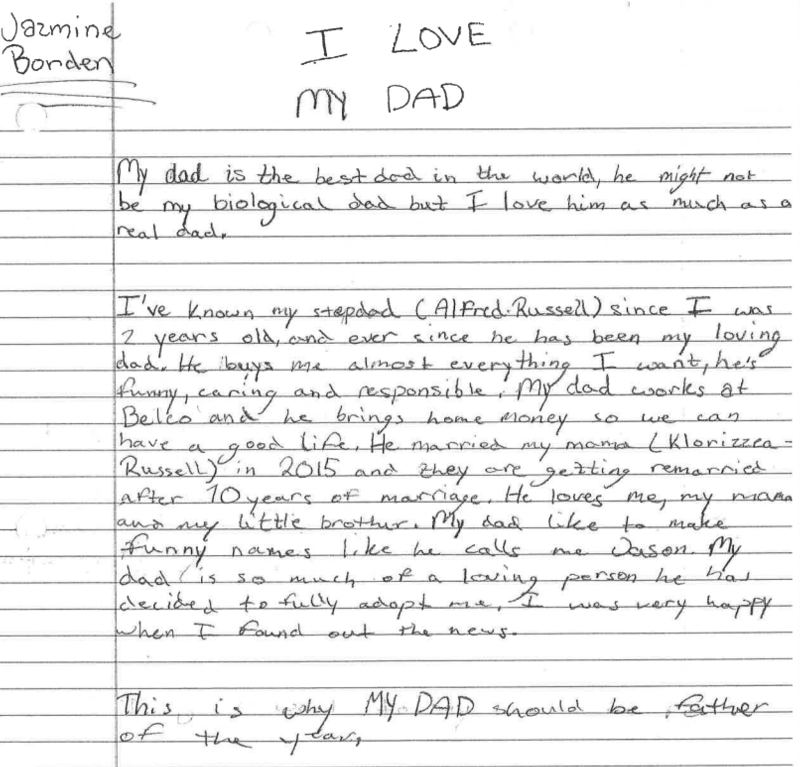 Jazmine
Borden
I LOVE
MY DAD
My dad is the best dad in the world, he might not
be my biological dad but I love him as much as a
real dad.
I've known my stepdad (Alfred Russell) since I was
2 years old, and ever since he has been my loving
dad. He buys me almost everything I want, he's
funny, caring and responsible. My dad works at
Belco and he brings home money so we can
have a good life. He married my mama (Klorizzea-
Russell) in 2015 and they are getting remarried
after 10 years of marriage. He loves me, my mama
and my little brother. My dad like to make
funny names like he calls me Jason. My
dad is so much of a loving person he has
decided to fully adopt me. I was very happy
when I found out the news.
This is why MY DAD should be father
of the year.